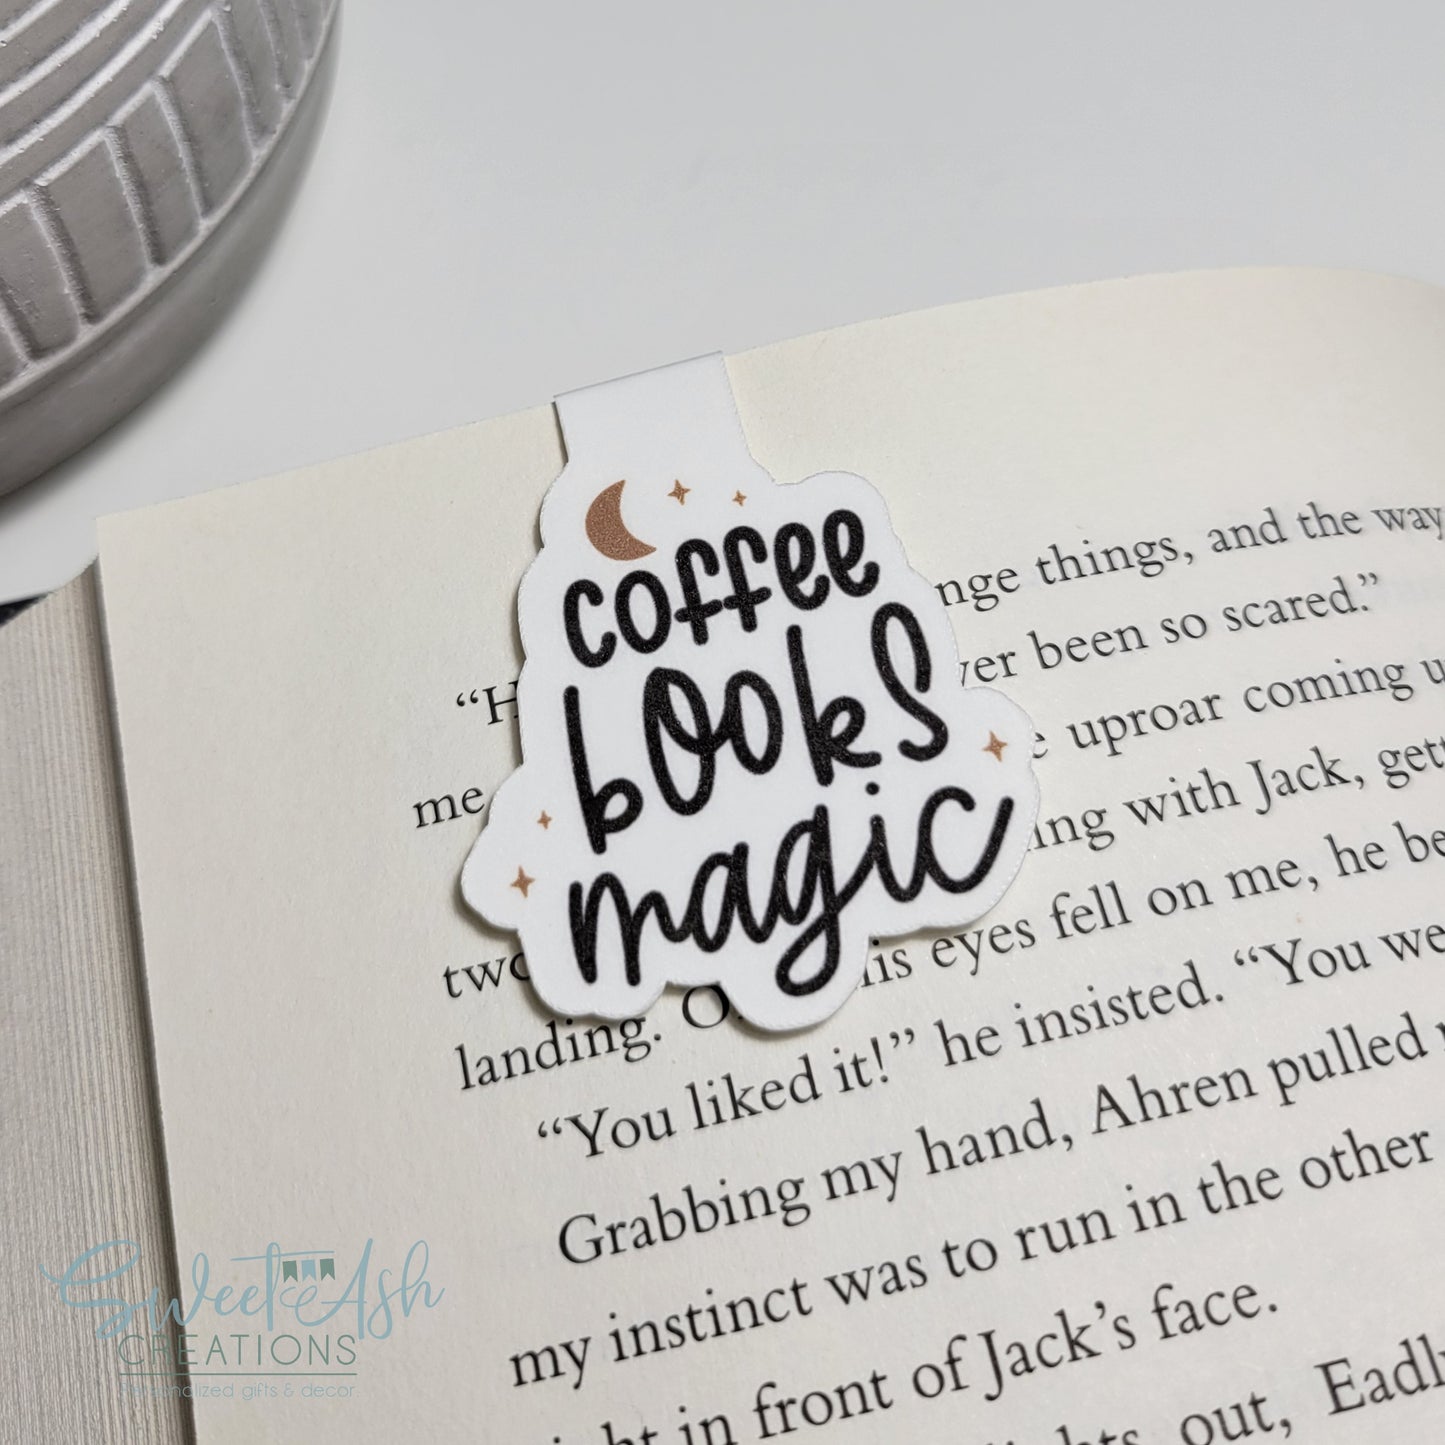 coffee
books
magic
nge things, and the way
ver been so scared.”
“H
uproar coming u
me
ng with Jack, gett
two
is eyes fell on me, he be
landing. O
“You liked it!” he insisted. “You we
Grabbing my hand, Ahren pulled
my instinct was to run in the other
in front of Jack’s face.
out, Eadly
Sweet Ash
CREATIONS
Personalized gifts & decor